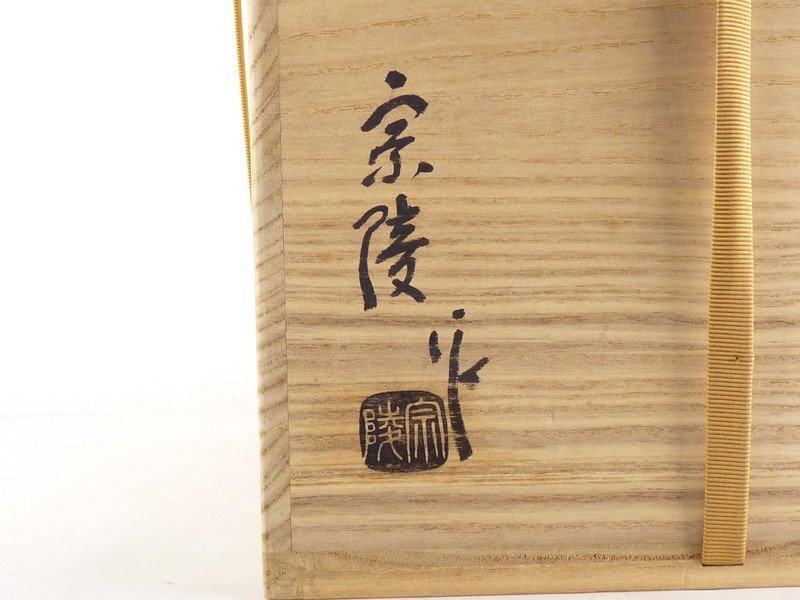 宗陵作
宗陵